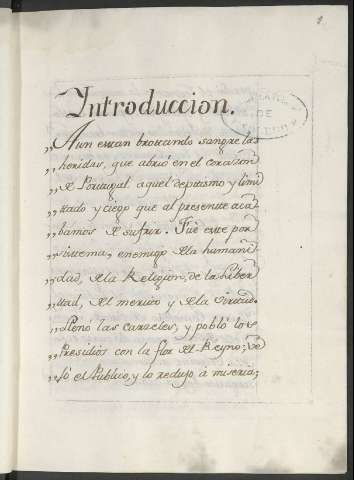 1
Introduccion.
„Aun estan brotando sangre las
„heridas, que abrió en el corazon
„de Portugal aquel depotismo y limi
„tado y ciego que al presente aca
„bamos de sufrir. Fue este por
„sistema, enemigo de la humani
„dad, de la Religion, de la liber
„tad, del merito y de la virtud.
„Llenó las carceles, y pobló los
„Presidios con la flor del Reyno;
„só el Publico, y lo redujo á miseria;
DE